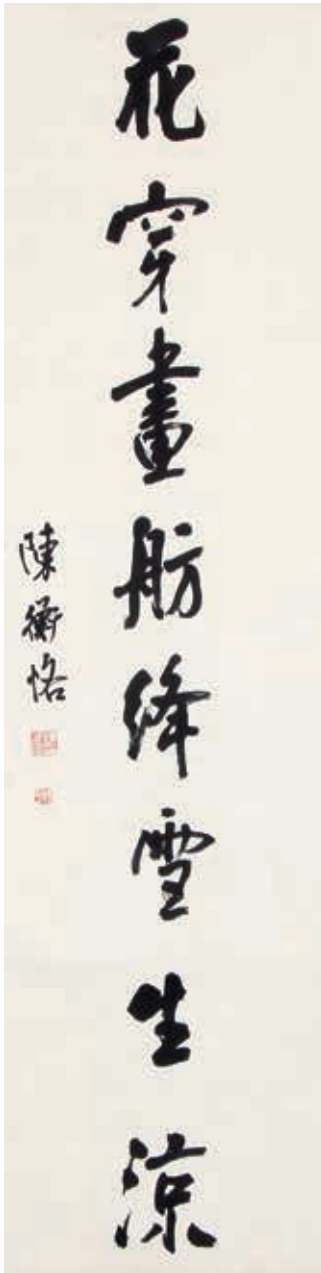 花穿畫舫絳雪生涼
陳衡恪